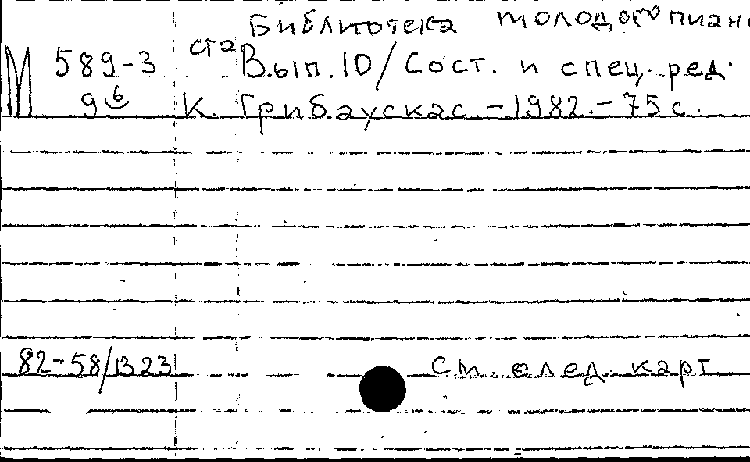 Библиотека молодого пиани
ста
М 589-3 Вып. 10/Сост. и спец. ред.
9б К. Грибаускас -1982.- 75 с.
82-58/1323 См. след. карт